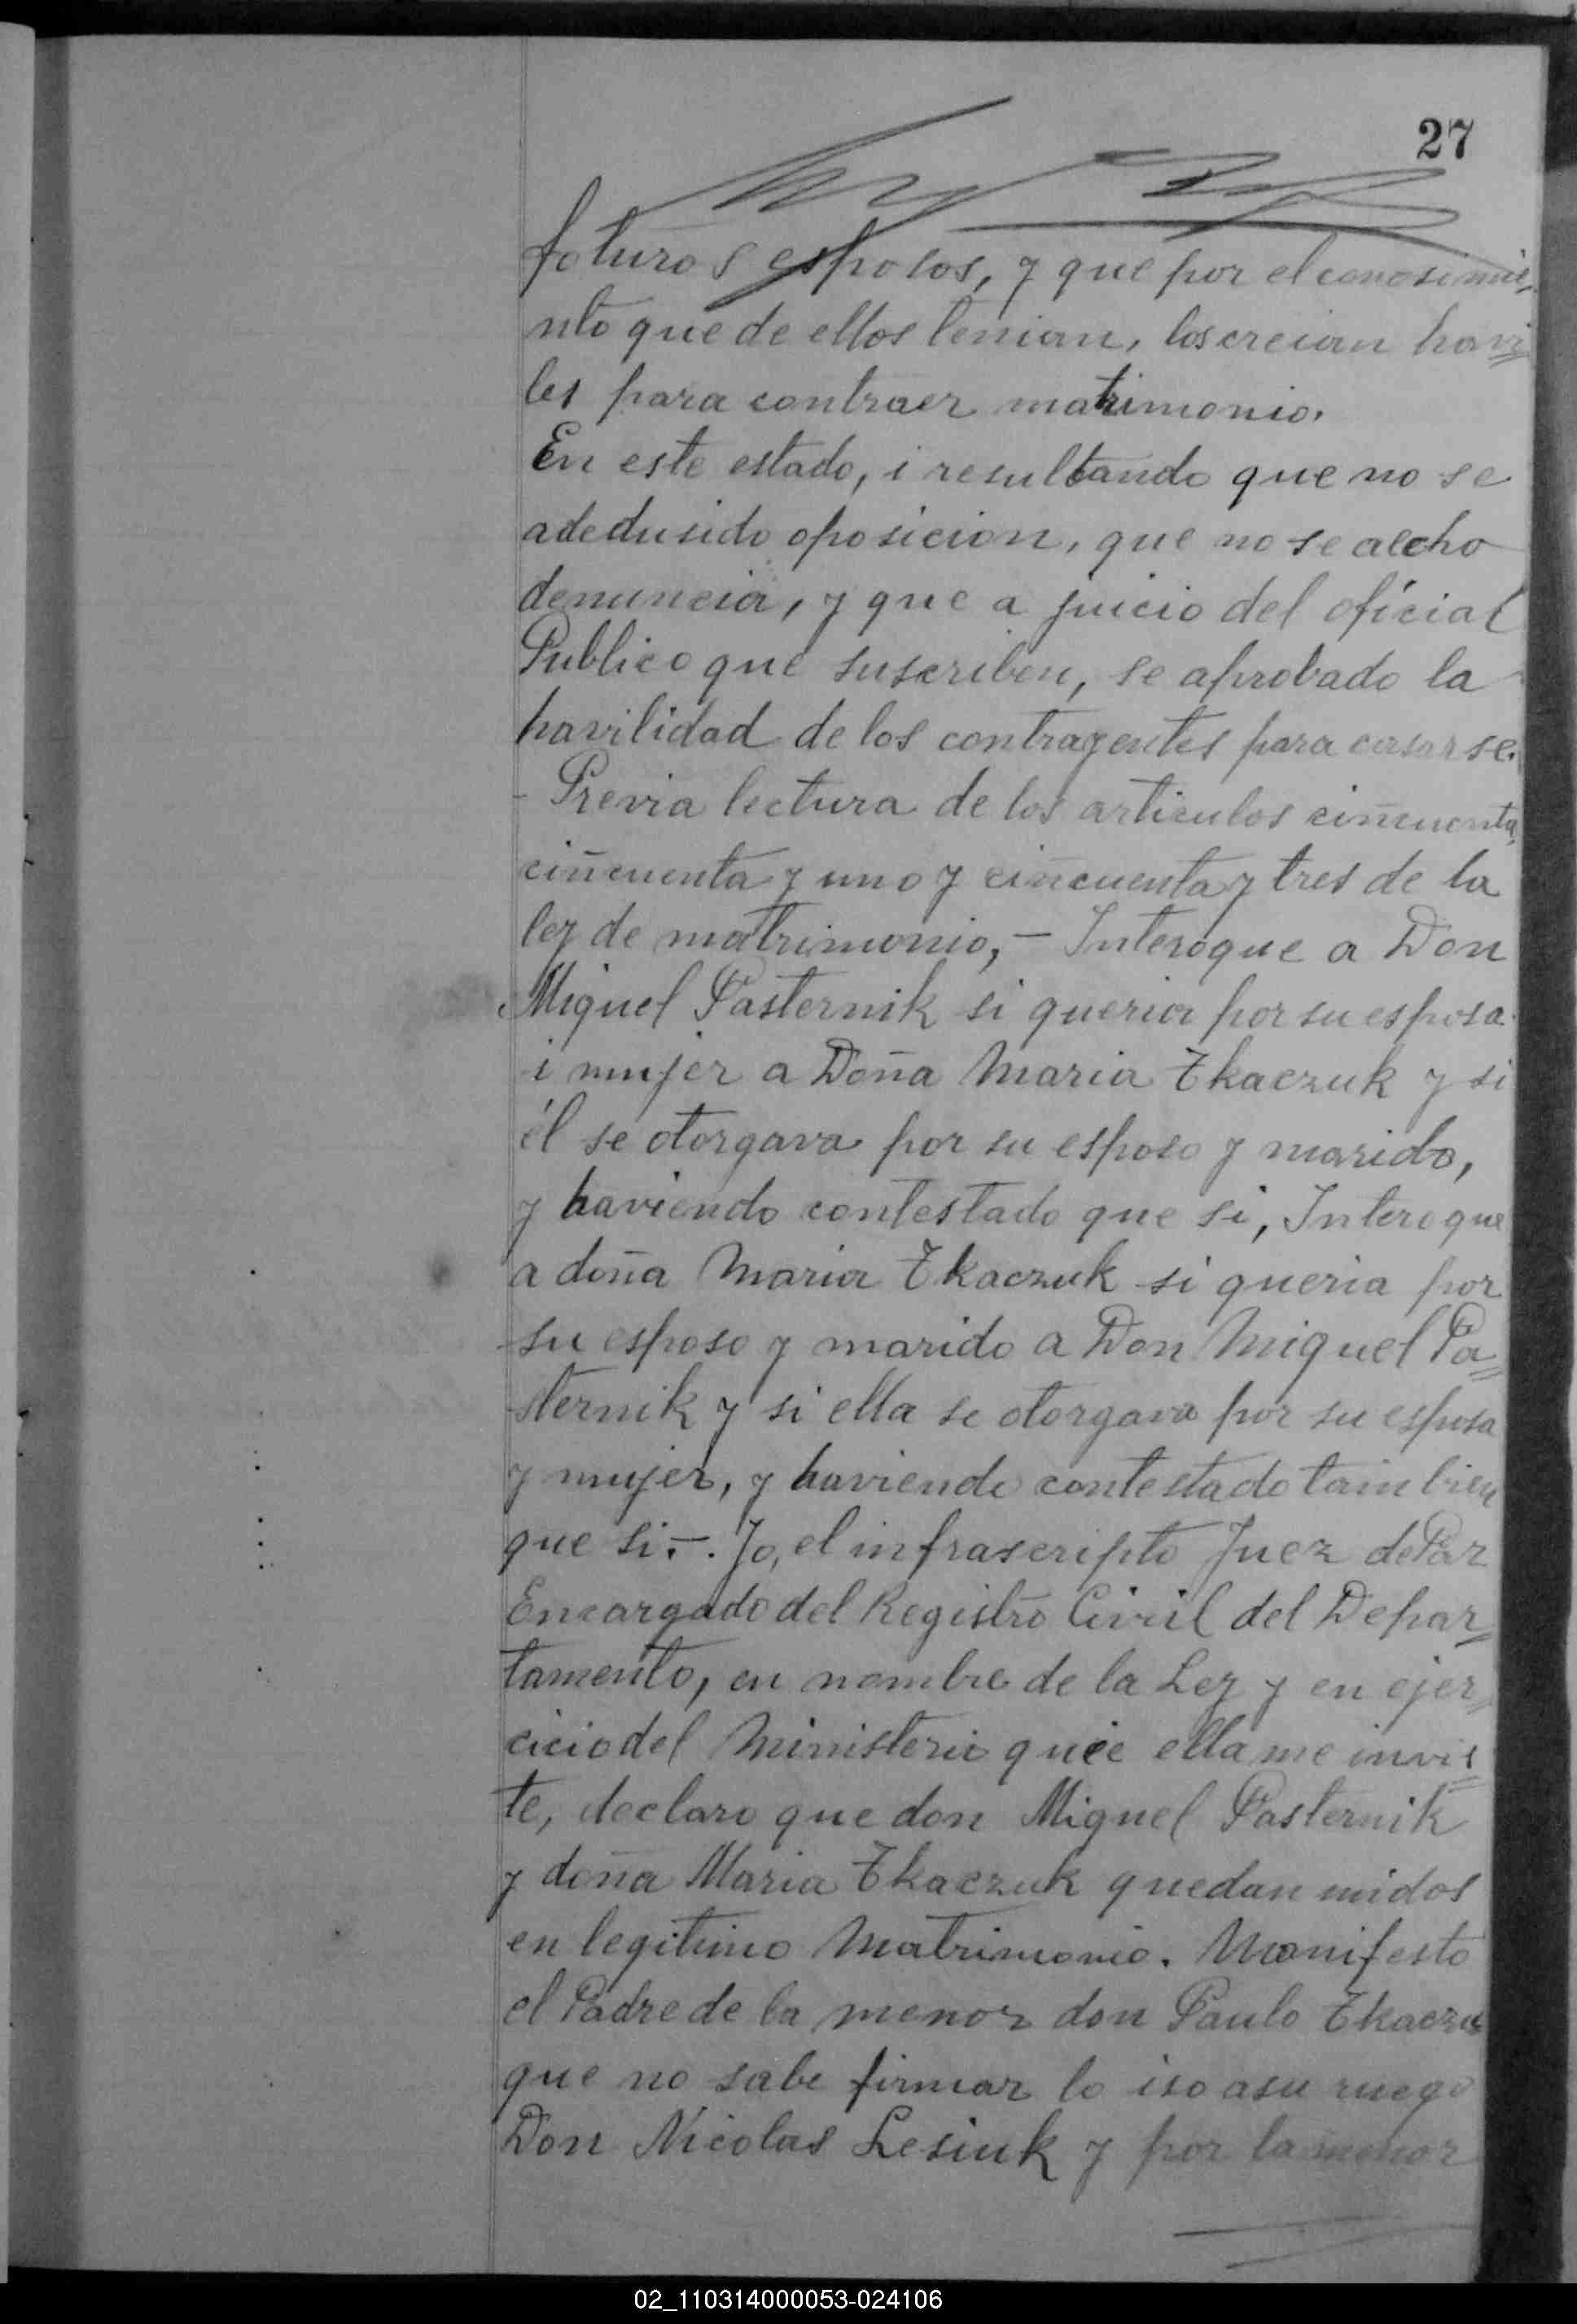 27
foturos esposos, y que por el conosimie=
nto que de ellos tenian, los creian havi=
les para contraer matrimonio.
En este estado, i resultando que no se
a dedusido oposicion, que no se a echo
denuncia, y que a juicio del oficial
Publico que suscriben, se aprobado la
havilidad de los contrayentes para casarse.
- Previa lectura de los articulos ciñcuenta,
ciñcuenta y uno y ciñcuenta y tres de la
ley de matrimonio, - Interogue a Don
Miguel Pasternik si queria por su esposa
i mujer a Doña Maria Tkaczuk y si
él se otorgava por su esposo y marido,
y haviendo contestado que si, Interogue
a doña Maria Tkaczuk si queria por
su esposo y marido a Don Miguel Pa=
sternik y si ella se otorgava por su esposa
y mujer, y haviendo contestado tambien
que si.-. Yo, el infrascripto Juez de Paz
Encargado del Registro Civil del Depar=
tamento, en nombre de la Ley y en ejer=
cicio del Ministerio quie ella me invis=
te, declaro que don Miguel Pasternik
y doña Maria Tkaczuk quedan unidos
en legitimo Matrimonio. Manifesto
el Padre de la menor don Paulo Tkaczuk
que no sabe firmar lo iso a su ruego
Don Nicolas Lesiuk y por la menor
02_110314000053-024106